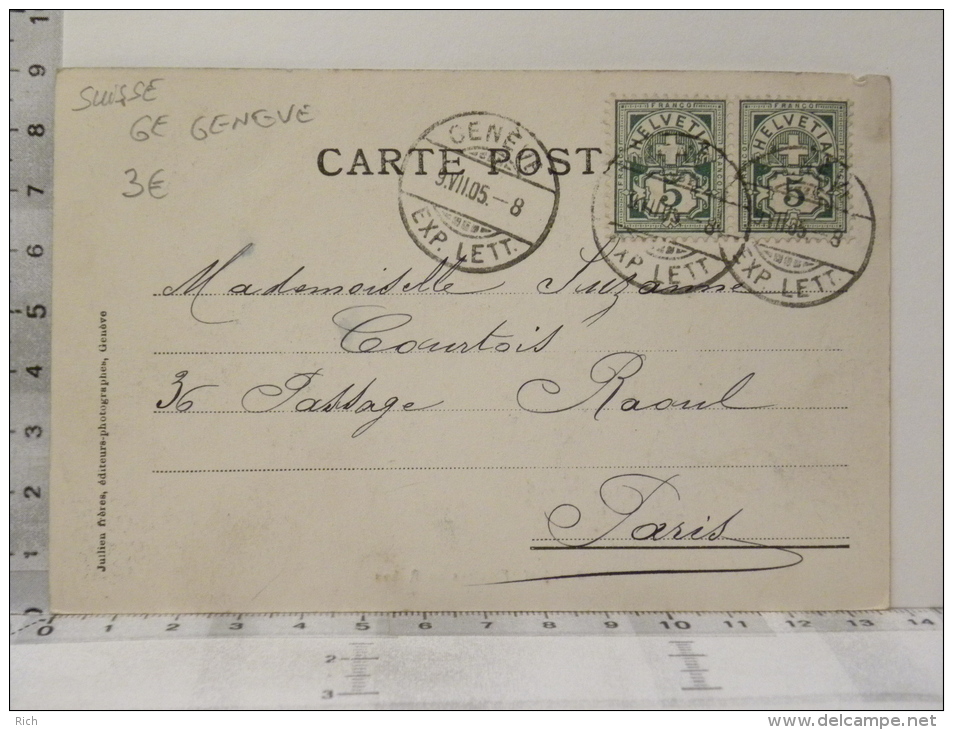 SUISSE
GE GENEVE
3€
CARTE POST
GENÈV
9.VII.05.-8
EXP. LETT.
FRANCO
HELVETIA
5
VII.05.-8
EXP. LETT
FRANCO
HELVETIA
5
9.VII.05.-8
EXP. LETT.
Mademoiselle Suzanne
Courtois
36 Passage Raoul
Paris
Jullien frères, éditeurs-photographes, Genève
10
9
8
7
6
5
4
3
2
1
0
0 1 2 3 4 5 6 7 8 9 10 11 12 13 14
2 5 10
3
Rich
delcampe.net